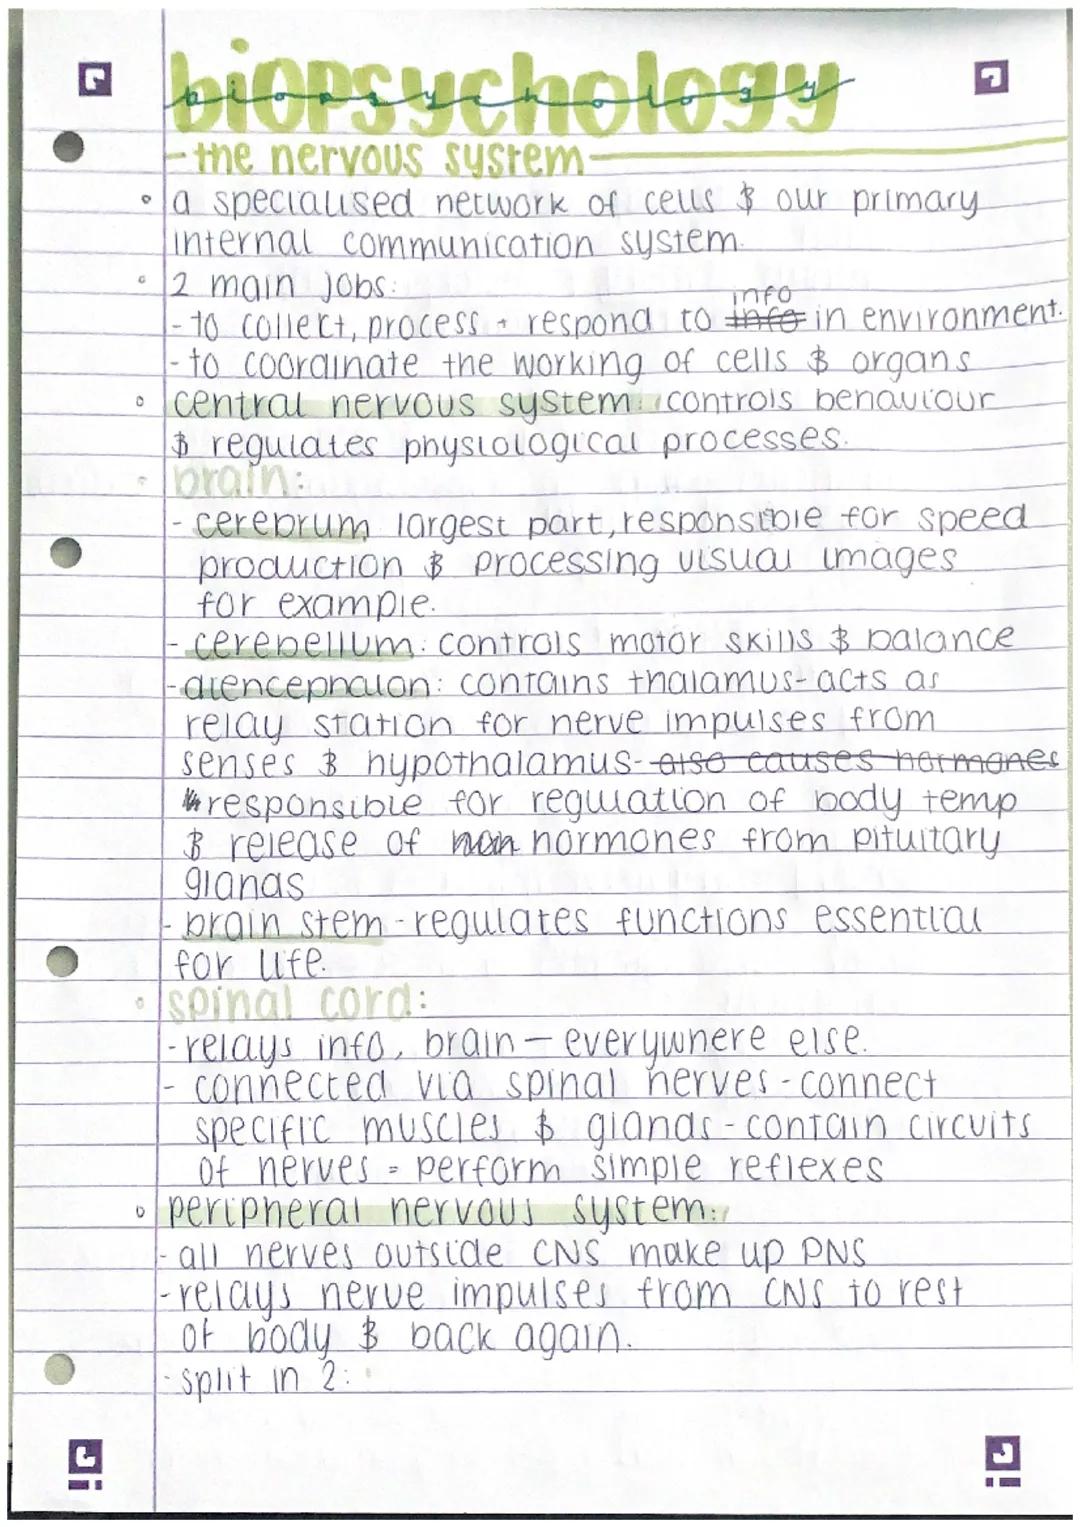 biopsychology
biopsychology
- the nervous system -
• a specialised network of cells & our primary
internal communication system.
• 2 main jobs:
info
- to collect, process + respond to info in environment.
- to coordinate the working of cells & organs
• central nervous system: controls behaviour
& regulates physiological processes.
• brain:
- cerebrum, largest part, responsible for speed
production & processing visual images
for example.
- cerebellum: controls motor skills & balance
- diencephalon: contains thalamus - acts as
relay station for nerve impulses from
senses & hypothalamus - also causes hormones
responsible for regulation of body temp
& release of hormones from pituitary
glands
- brain stem - regulates functions essential
for life.
• spinal cord:
- relays info, brain — everywhere else.
- connected via spinal nerves - connect
specific muscles & glands - contain circuits
of nerves = perform simple reflexes
• peripheral nervous system:
- all nerves outside CNS make up PNS
- relays nerve impulses from CNS to rest
of body & back again.
- split in 2: